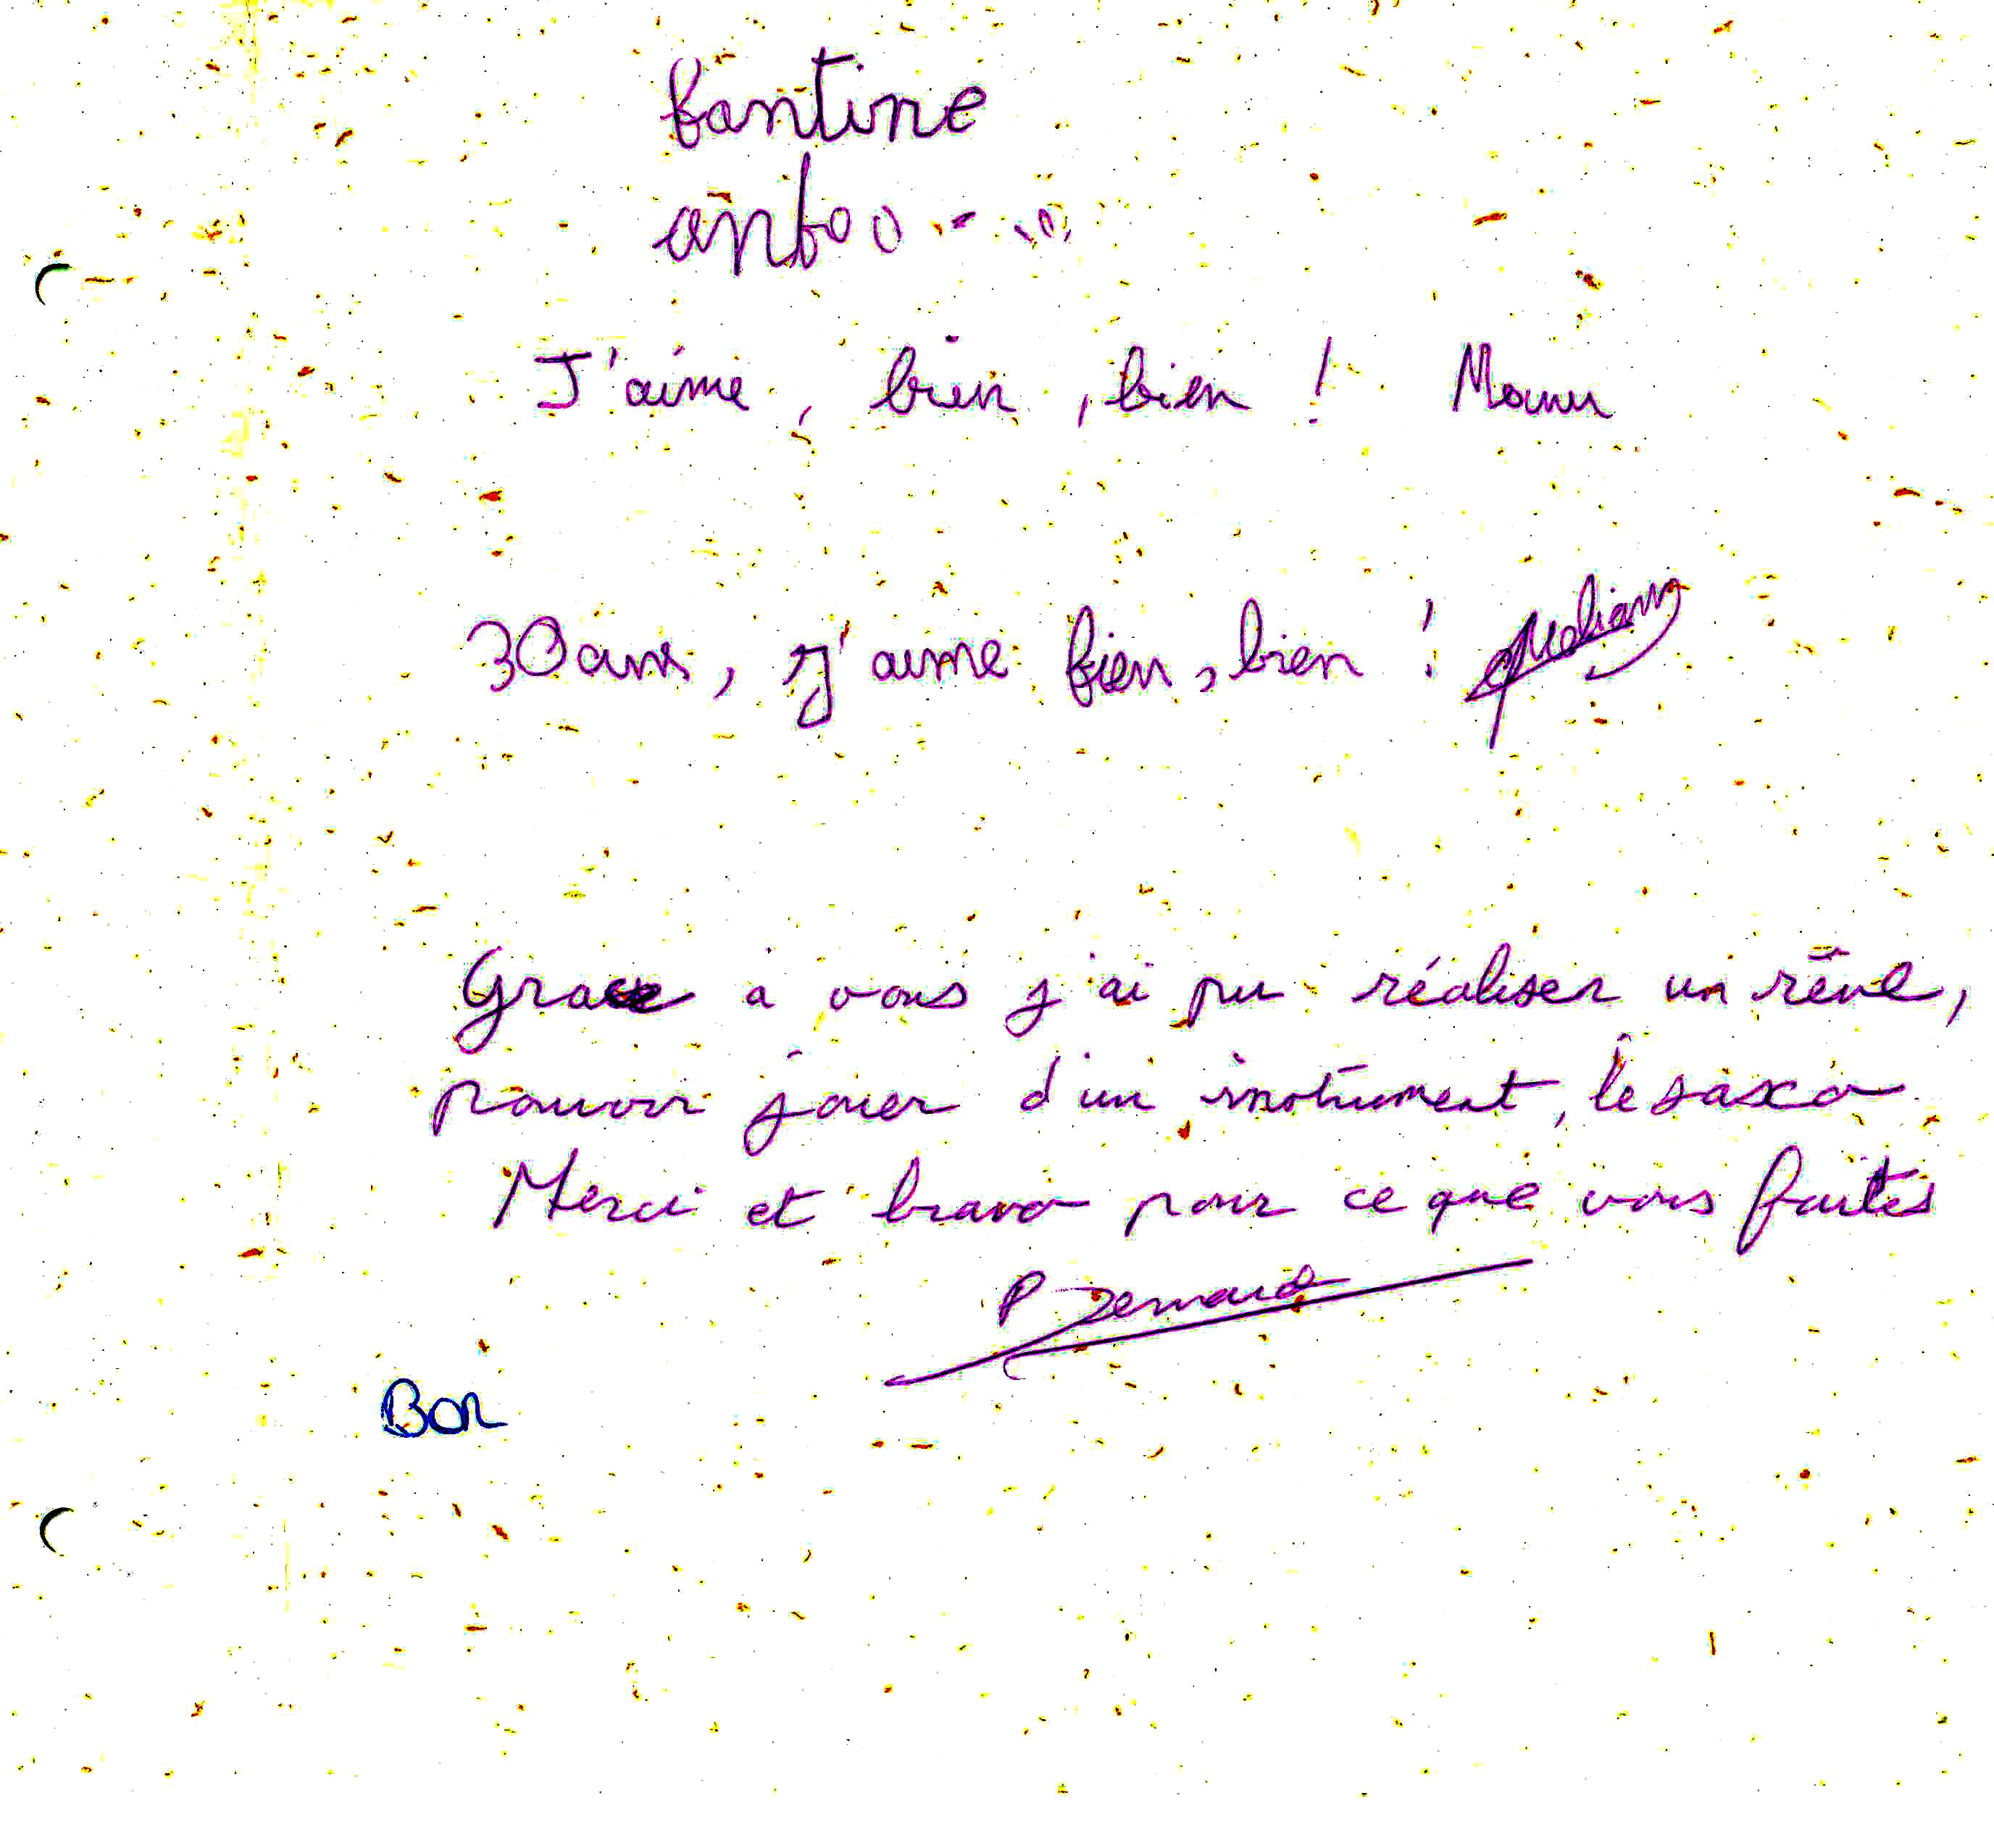 fantine
J'aime, bien, bien ! Manu
30 ans, j'aime bien, bien !
Grace a vous j'ai pu réaliser un rêve,
pouvoir jouer d'un instrument, le saxo
Merci et bravo pour ce que vous faites
Bon